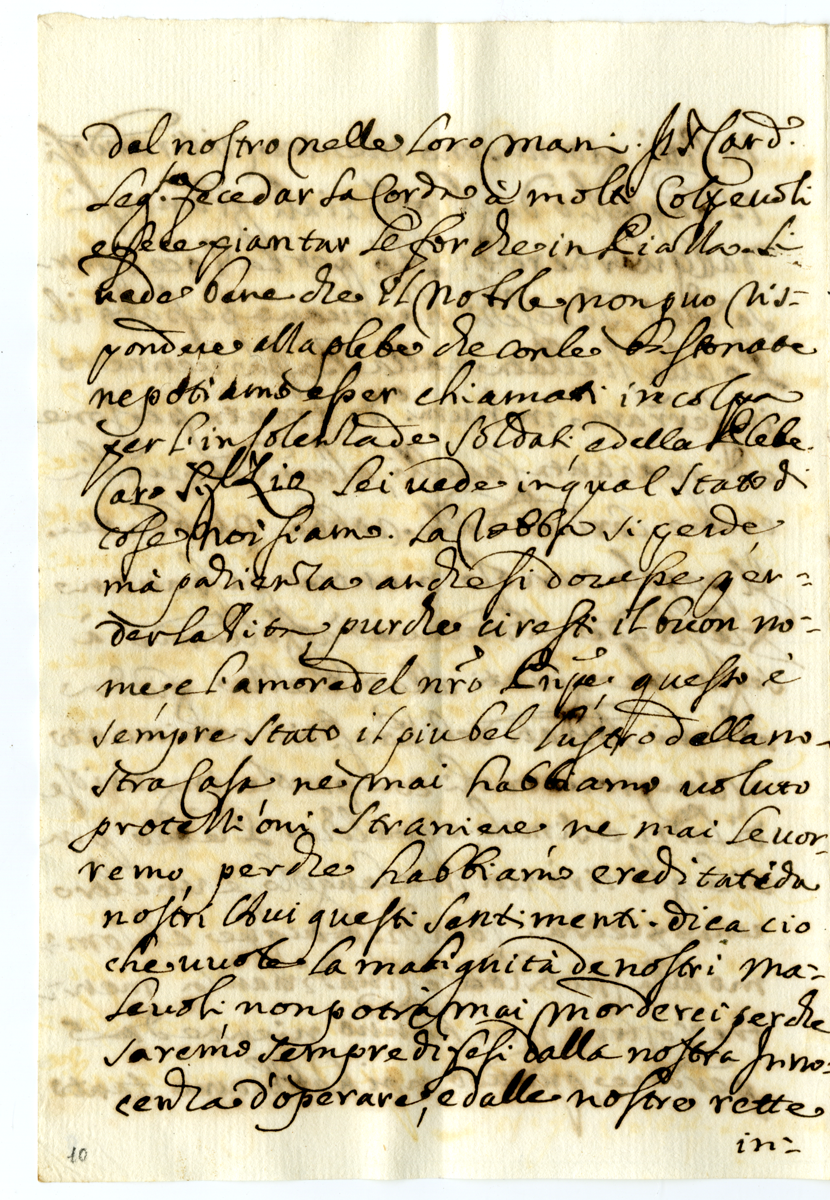 del nostro nelle loro mani. Il Card.
Leg.º fece dar la Corda à molti Colpevoli
e fece piantar le forche in Piazza. Si
vede bene che il Nobile non può ris=
pondere alla plebe che con le bastonate
ne potiamo esser chiamati in colpa
per l'insolenza de Soldati, e della Plebe.
Caro Sig. Zio Lei vede in qual stato di
cose noi siamo. La robba si perde
mà pazienza anche si dovesse per=
der la Vita, purche ci resti il buon no=
me, e l'amore del nrõ Prñpe, questo è
sempre stato il piu bel lustro della no=
stra Casa ne mai habbiamo voluto
protettioni straniere ne mai le vor=
remo, perche habbiamo ereditati da
nostri Avi questi sentimenti. dica cio
che vuole la malignità de nostri ma=
levoli non potrà mai morderci perche
saremo sempre difesi dalla nostra Inno=
cenza d'operare, e dalle nostre rette
in=
10